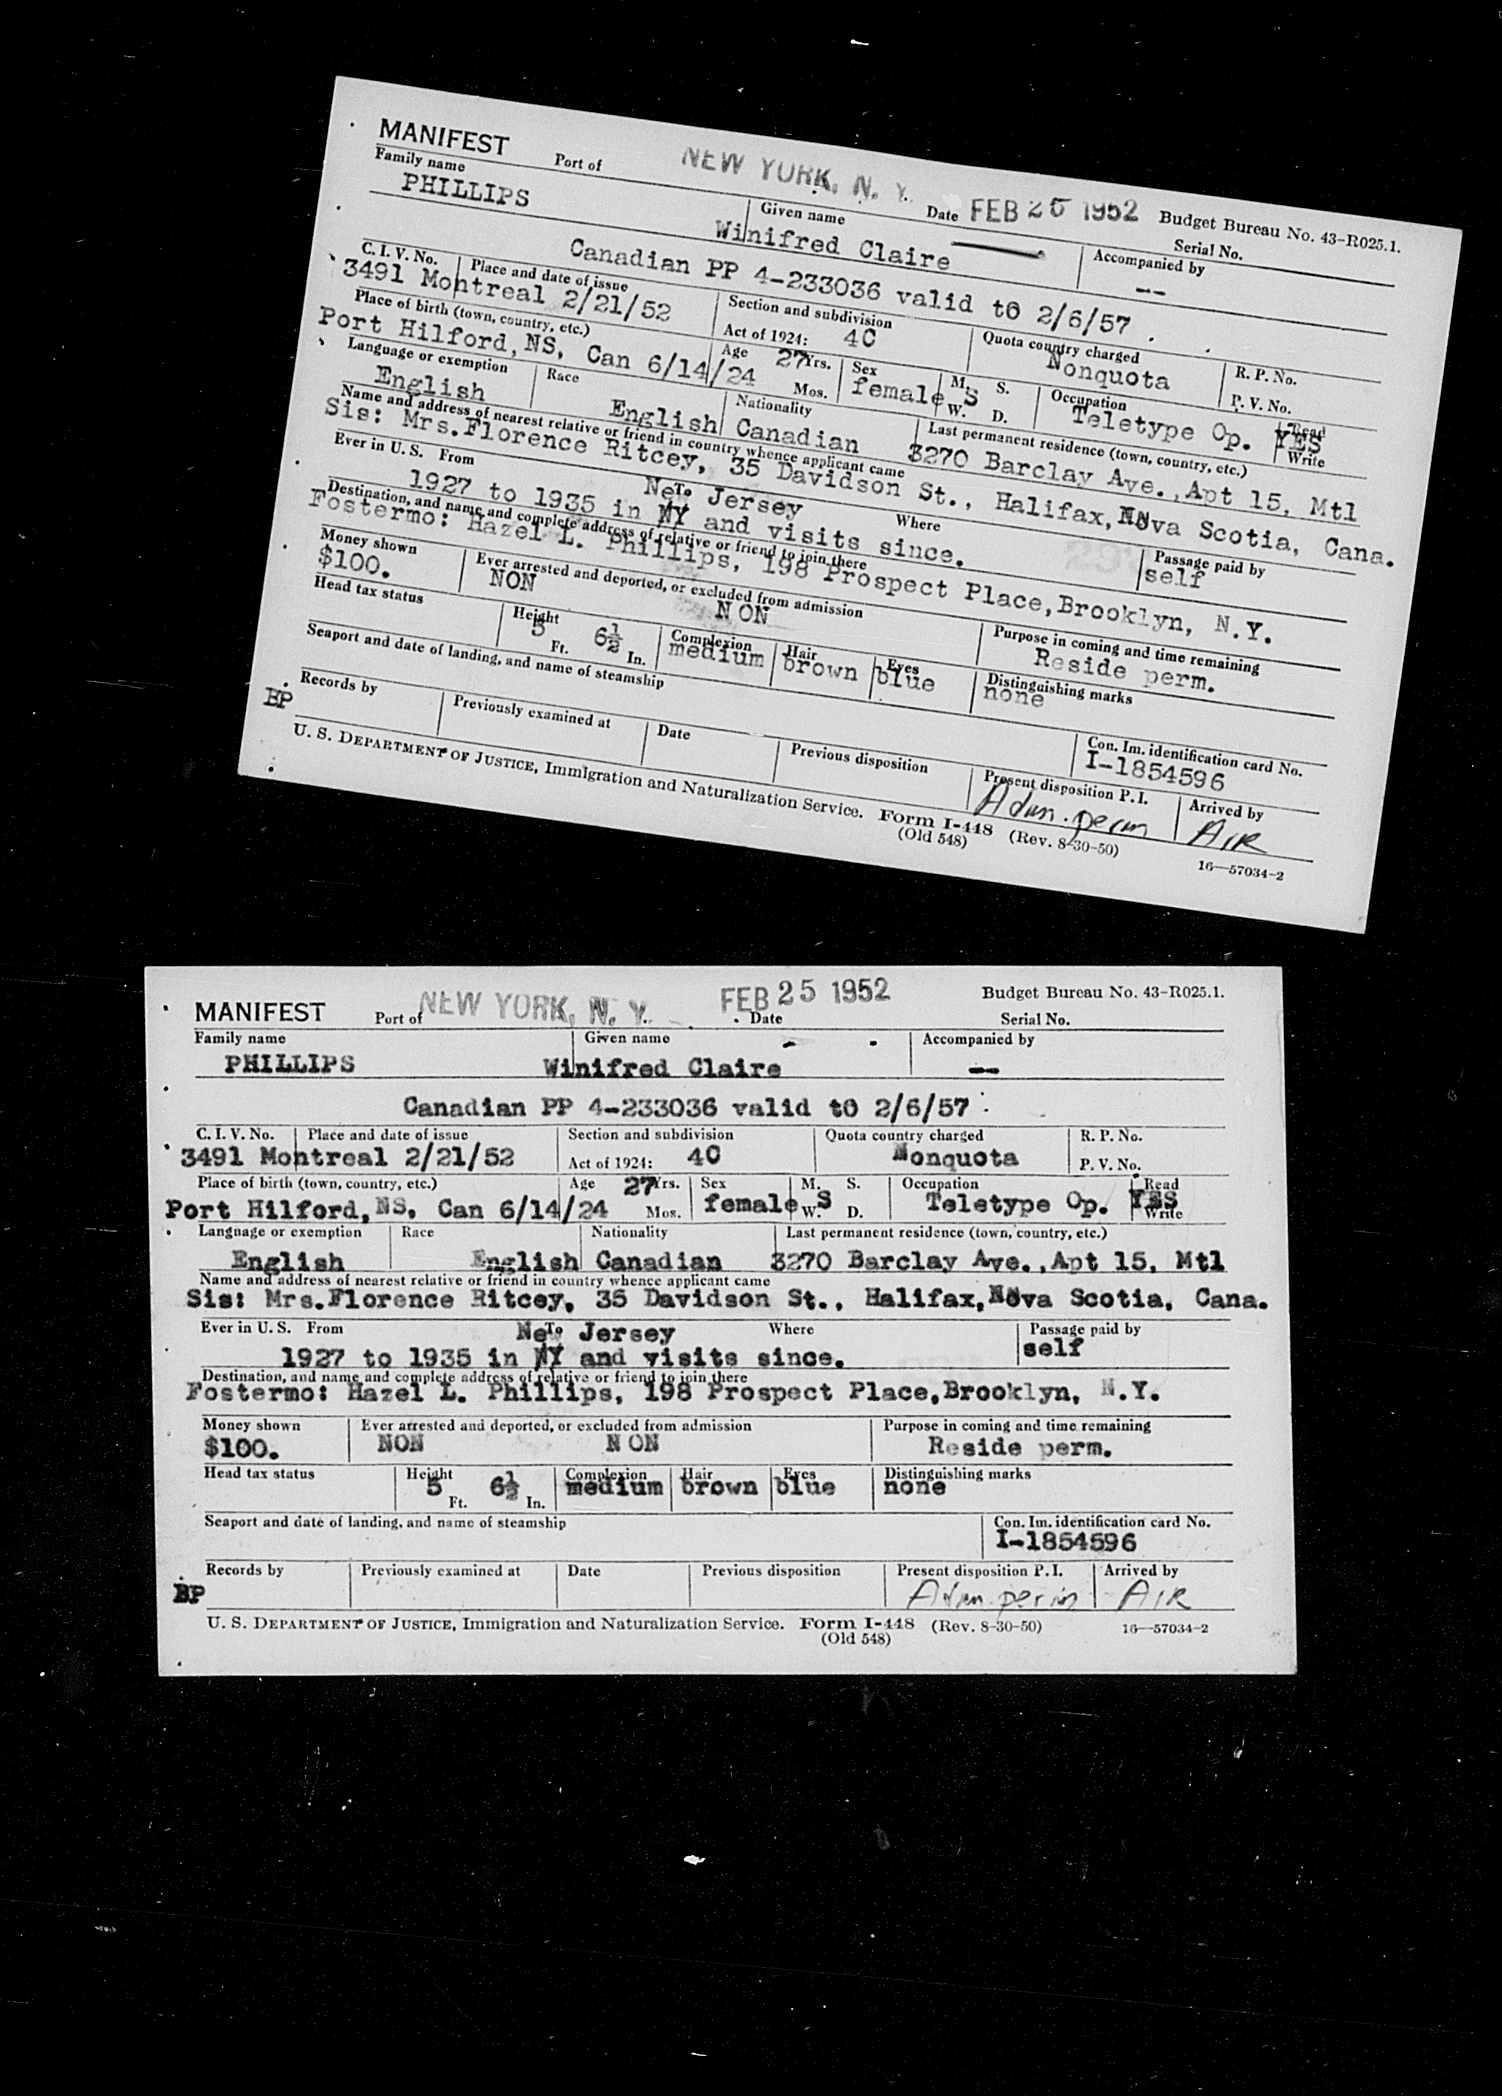 MANIFEST Port of NEW YORK, N. Y. Date FEB 25 1952 Budget Bureau No. 43-R025.1.
Serial No.
Family name Given name Accompanied by
PHILLIPS Winifred Claire --
Canadian PP 4-233036 valid to 2/6/57
C. I. V. No. Place and date of issue Section and subdivision Quota country charged R. P. No.
3491 Montreal 2/21/52 Act of 1924: 4C Nonquota P. V. No.
Place of birth (town, country, etc.) Age 27 Yrs. Sex M. S. Occupation Read
Port Hilford, NS, Can 6/14/24 Mos. female W. S D. Teletype Op. YES Write
Language or exemption Race Nationality Last permanent residence (town, country, etc.)
English English Canadian 3270 Barclay Ave., Apt 15, Mtl
Name and address of nearest relative or friend in country whence applicant came
Sis: Mrs. Florence Ritcey, 35 Davidson St., Halifax, Nova Scotia, Cana.
Ever in U. S. From To Where Passage paid by
New Jersey self
1927 to 1935 in NY and visits since.
Destination, and name and complete address of relative or friend to join there
Fostermo: Hazel L. Phillips, 198 Prospect Place, Brooklyn, N.Y.
Money shown Ever arrested and deported, or excluded from admission Purpose in coming and time remaining
$100. NON NON Reside perm.
Head tax status Height Complexion Hair Eyes Distinguishing marks
5 Ft. 6½ In. medium brown blue none
Seaport and date of landing, and name of steamship Con. Im. identification card No.
I-1854596
Records by Previously examined at Date Previous disposition Present disposition P. I. Arrived by
BP Adm. perm AIR
U. S. DEPARTMENT OF JUSTICE, Immigration and Naturalization Service. Form I-448 (Rev. 8-30-50) 16—57034-2
(Old 548)
MANIFEST Port of NEW YORK, N. Y. FEB 25 1952 Date Budget Bureau No. 43-R025.1.
Serial No.
Family name Given name Accompanied by
PHILLIPS Winifred Claire --
Canadian PP 4-233036 valid to 2/6/57
C. I. V. No. Place and date of issue Section and subdivision Quota country charged R. P. No.
3491 Montreal 2/21/52 Act of 1924: 4C Nonquota P. V. No.
Place of birth (town, country, etc.) Age 27 Yrs. Sex M. S. Occupation Read
Port Hilford, NS, Can 6/14/24 Mos. female W. S D. Teletype Op. YES Write
Language or exemption Race Nationality Last permanent residence (town, country, etc.)
English English Canadian 3270 Barclay Ave., Apt 15, Mtl
Name and address of nearest relative or friend in country whence applicant came
Sis: Mrs. Florence Ritcey, 35 Davidson St., Halifax, Nova Scotia, Cana.
Ever in U. S. From To Where Passage paid by
New Jersey self
1927 to 1935 in NY and visits since.
Destination, and name and complete address of relative or friend to join there
Fostermo: Hazel L. Phillips, 198 Prospect Place, Brooklyn, N.Y.
Money shown Ever arrested and deported, or excluded from admission Purpose in coming and time remaining
$100. NON NON Reside perm.
Head tax status Height Complexion Hair Eyes Distinguishing marks
5 Ft. 6½ In. medium brown blue none
Seaport and date of landing, and name of steamship Con. Im. identification card No.
I-1854596
Records by Previously examined at Date Previous disposition Present disposition P. I. Arrived by
BP Adm. perm AIR
U. S. DEPARTMENT OF JUSTICE, Immigration and Naturalization Service. Form I-448 (Rev. 8-30-50) 16—57034-2
(Old 548)